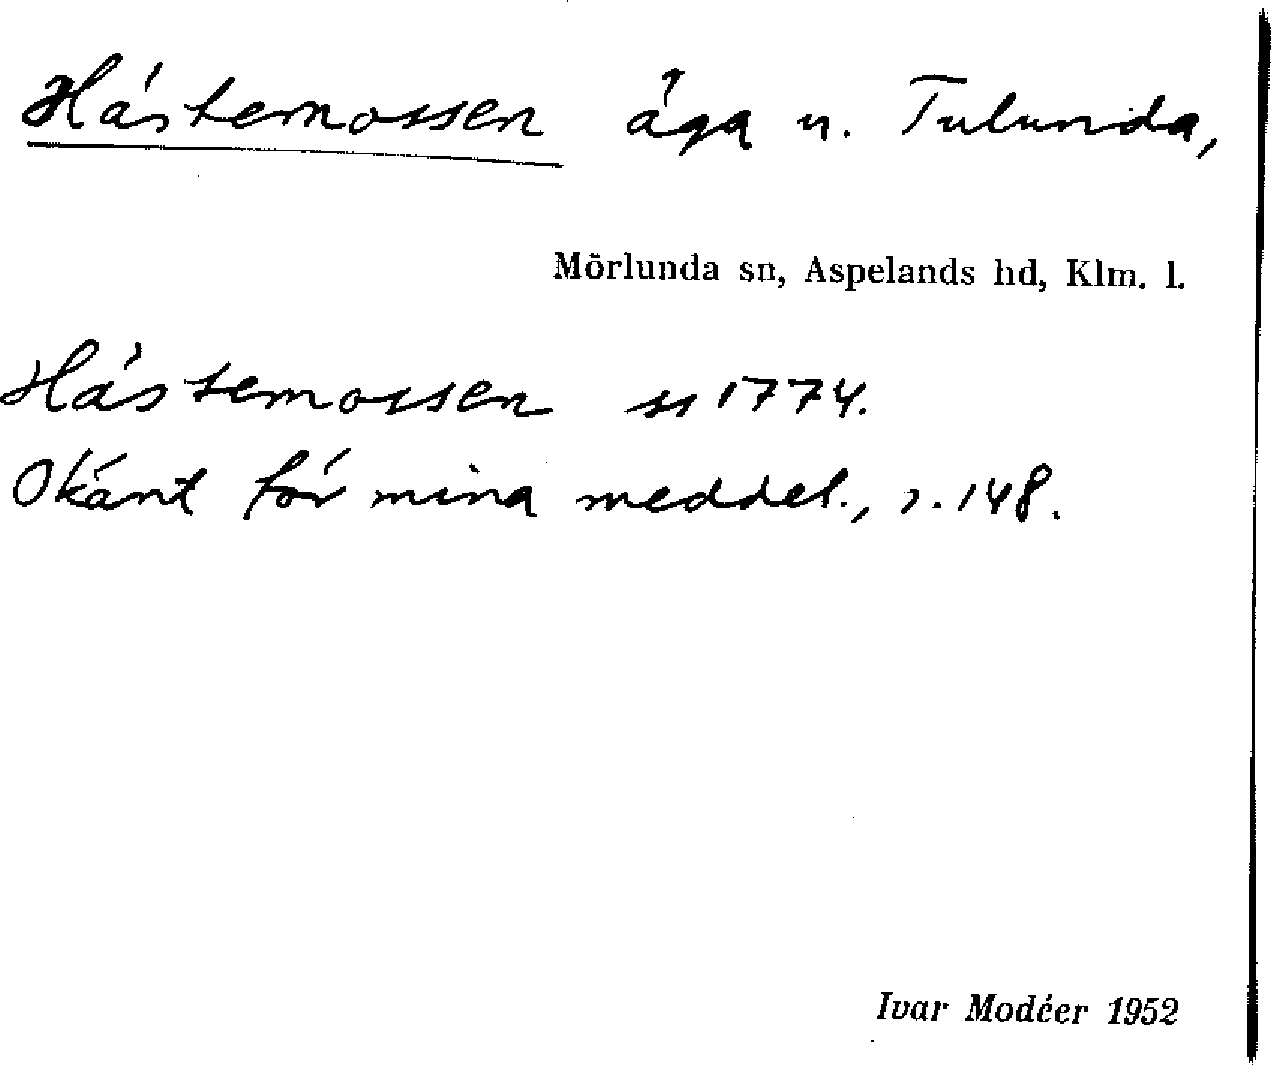 Hästemossen äga u. Tulunda,
Mörlunda sn, Aspelands hd, Klm. l.
Hästemossen ss 1774.
Okänt för mina meddel., s. 148.
Ivar Modéer 1952